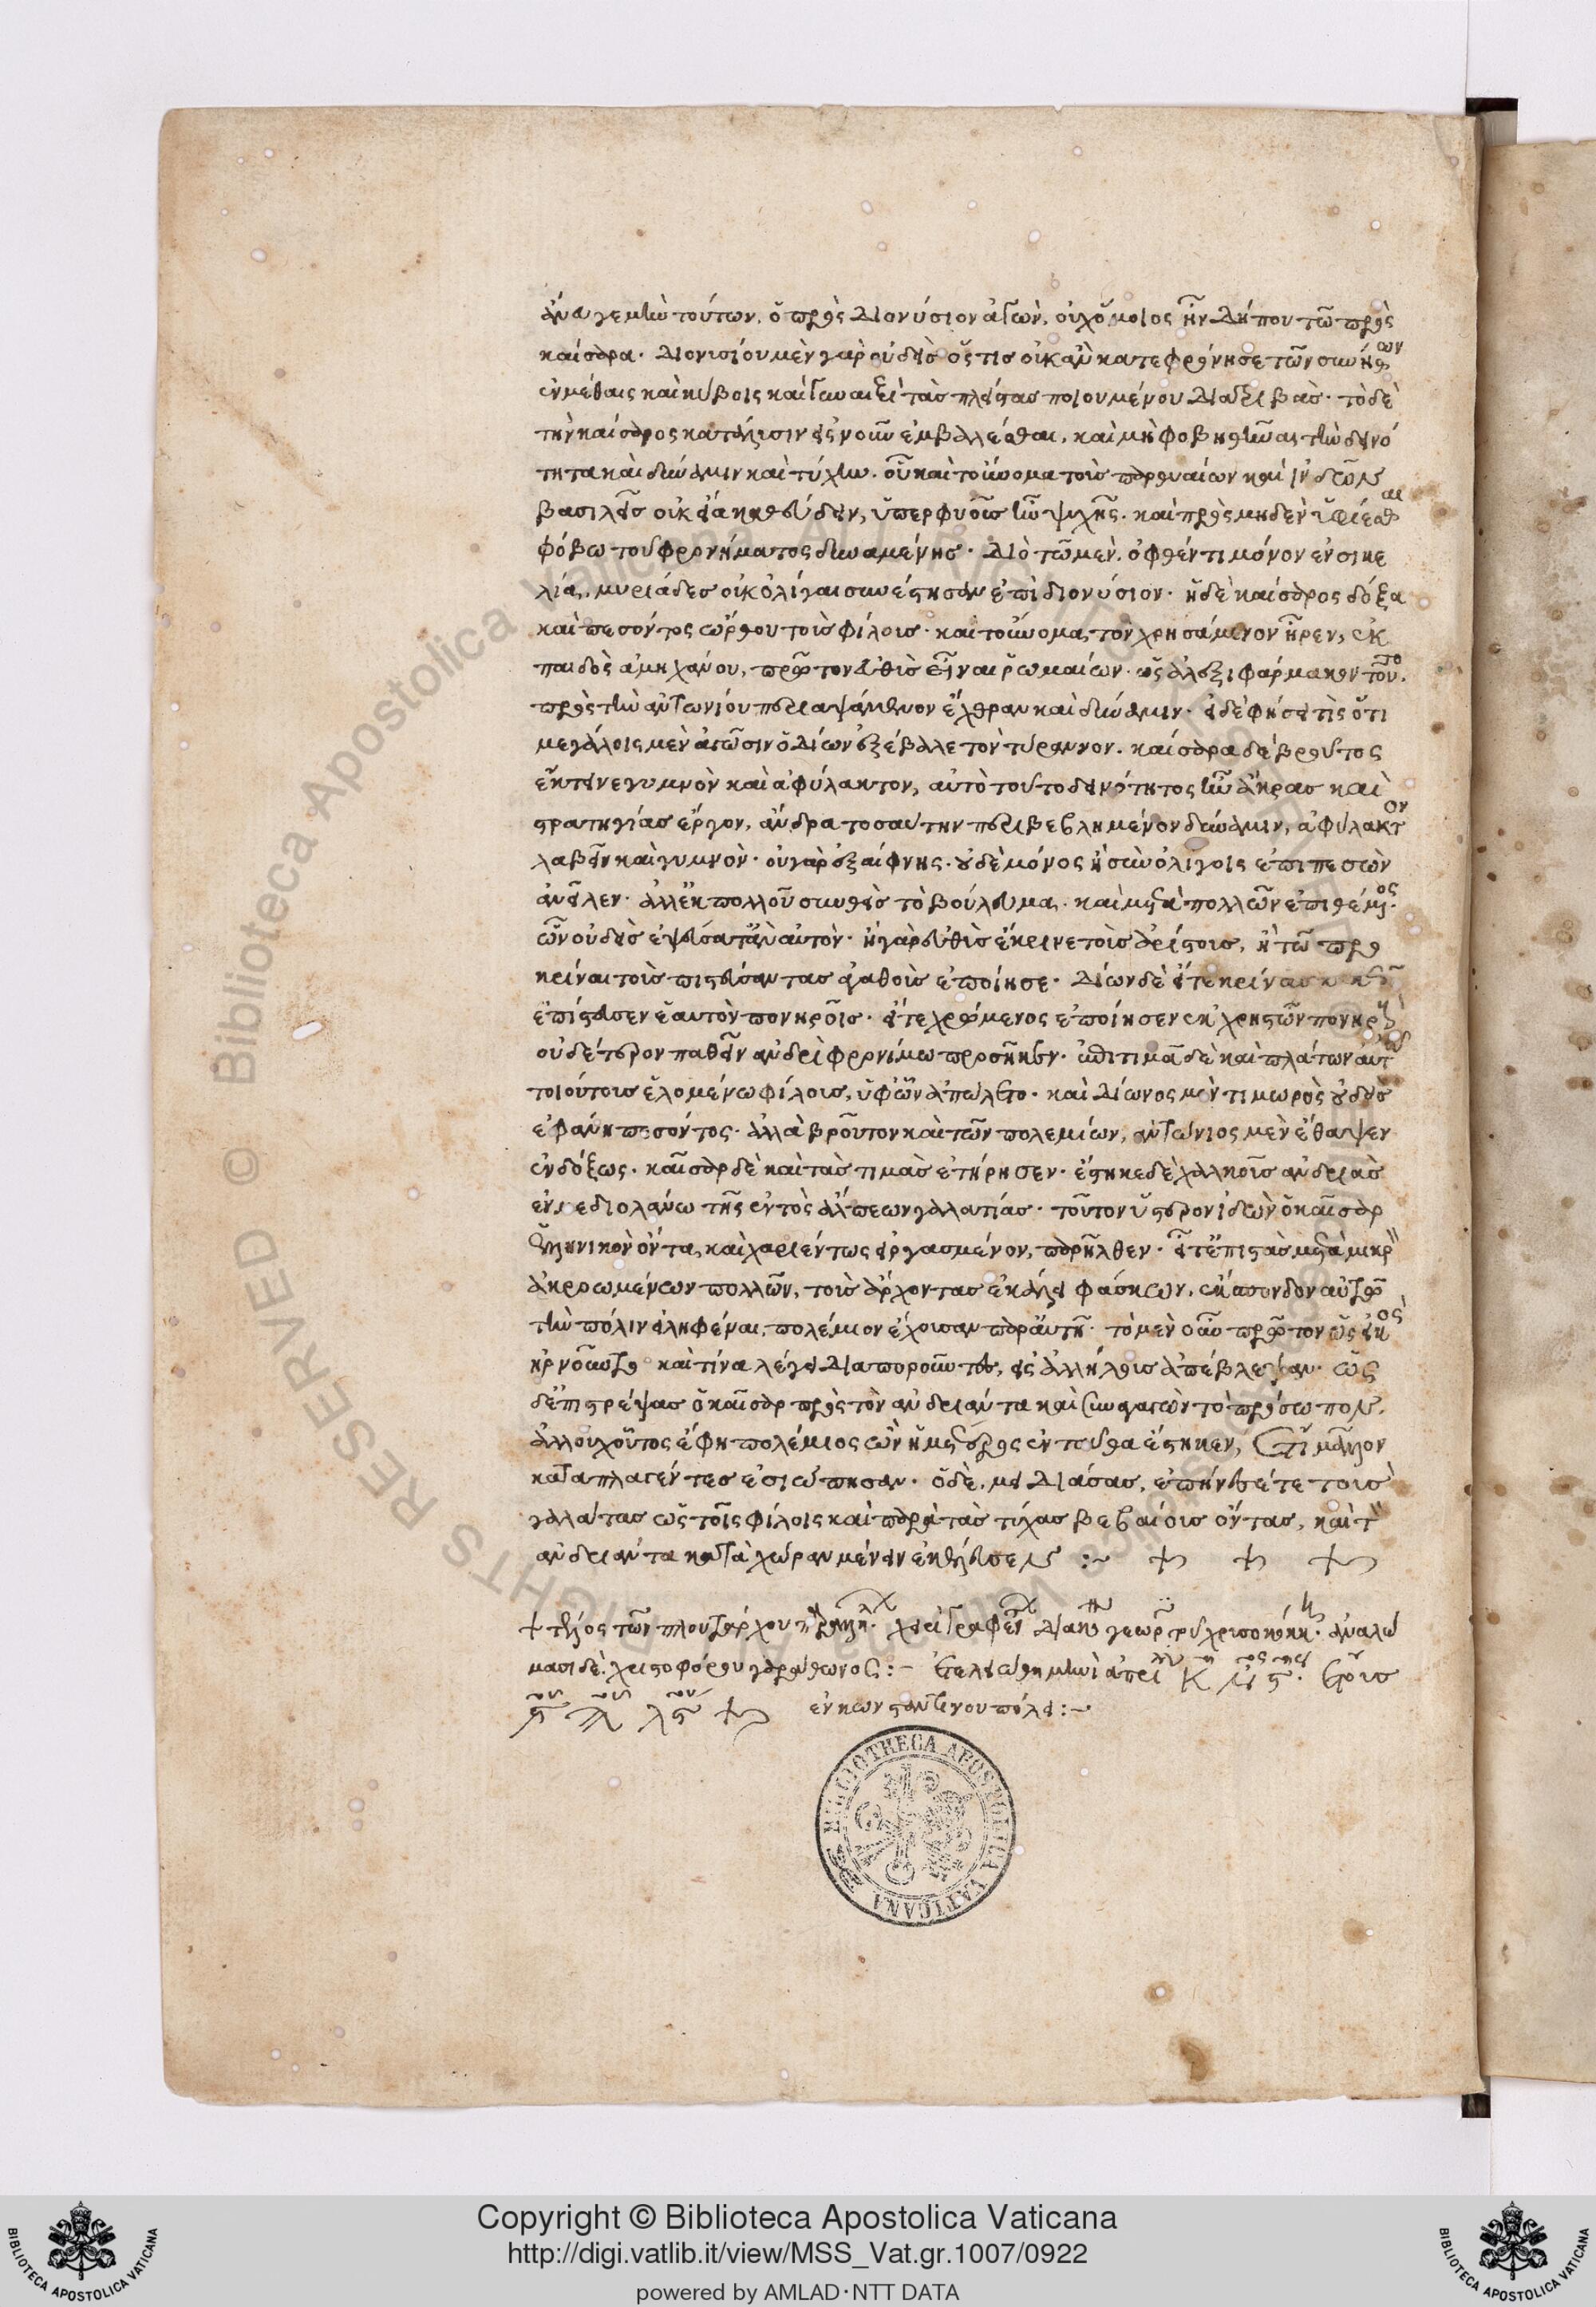 ἄνευ γε μὴν τούτων, ὁ πρὸς Διονύσιον ἀγὼν, οὐχ ὅμοιος ἦν δήπου τῶ πρὸς
καίσαρα. Διονισίου μὲν γὰρ οὐδεὶς ὅς τις οὐκ ἂν κατεφρόνησε τῶν συνήθων
ἐν μέθαις καὶ κύβοις καὶ γυναιξὶ τὰς πλείστας ποιουμένου διατριβάς. τὸ δὲ
τὴν καίσαρος κατάλυσιν εἰς νοῦν ἐμβαλλέσθαι, καὶ μὴ φοβηθῆναι τὴν δεινό
τητα καὶ δύναμιν καὶ τύχην. οὗ καὶ τοὔνομα τοὺς παρθυαίων καὶ ἰνδῶν
βασιλεῖς οὐκ εἴα καθεύδειν, ὑπερφυοῦς ἦν ψυχῆς. καὶ πρὸς μηδὲν ὑφίεσθαι
φόβω τοῦ φρονήματος δυναμένης. Διὸ τῶ μὲν, ὀφθέντι μόνον ἐν σικε
λία, μυριάδες οὐκ ὀλίγαι συνέστησαν ἐπὶ διονύσιον. ἡ δὲ καίσαρος δόξα
καὶ πεσόντος ὤρθου τοὺς φίλους. καὶ τοὔνομα, τὸν χρησάμενον ἦρεν, ἐκ
παιδὸς ἀμηχάνου, πρῶτον εὐθὺς εἶναι ῥωμαίων. ὡς ἀλεξιφάρμακον τοῦτο
πρὸς τὴν ἀντωνίου περιαψάμενον ἔχθραν καὶ δύναμιν. εἰ δὲ φήσει τὶς ὅτι
μεγάλοις μὲν ἀγῶσιν ὁ Δίων ἐξέβαλε τὸν τύραννον. καίσαρα δὲ βροῦτος
ἔκτεινε γυμνὸν καὶ ἀφύλακτον, αὐτὸ τοῦτο δεινότητος ἦν ἄκρας καὶ
στρατηγίας ἔργον, ἄνδρα τοσαύτην περιβεβλημένον δύναμιν, ἀφύλακτον
λαβεῖν καὶ γυμνόν. οὐ γὰρ ἐξαίφνης. οὐδὲ μόνος ἢ σὺν ὀλίγοις ἐπιπεσὼν
ἀνεῖλεν. ἀλλ' ἐκ πολλοῦ συνθεὶς τὸ βούλευμα, καὶ μετὰ πολλῶν ἐπιθέμενος.
ὧν οὐδεὶς ἐψεύσατ' αὐτόν. ἢ γὰρ εὐθὺς ἔκρινε τοὺς ἀρίστους, ἢ τῶ προ
κρίναι τοὺς πιστεύσαντας ἀγαθοὺς ἐποίησε. Δίων δὲ εἴτε κρίνας κακῶς
ἐπίστευσεν ἑαυτὸν πονηροῖς. εἴτε χρώμενος ἐποίησεν ἐκ χρηστῶν πονηροὺς
οὐδέτερον παθεῖν ἀνδρὶ φρονίμω προσῆκεν. ἐπιτιμᾶ δὲ καὶ πλάτων αὐτῶ
τοιούτους ἑλομένω φίλους, ὑφ' ὧν ἀπώλετο. καὶ Δίωνος μὲν τιμωρὸς οὐδεὶς
ἐφάνη πεσόντος. ἀλλὰ βροῦτον καὶ τῶν πολεμίων, ἀντώνιος μὲν ἔθαψεν
ἐνδόξως. καῖσαρ δὲ καὶ τὰς τιμὰς ἐτήρησεν. ἕστηκε δὲ χαλκοῦς ἀνδριὰς
ἐν μεδιολάνω τῆς ἐντὸς ἄλπεων γαλατίας. τοῦτον ὕστερον ἰδὼν ὁ καῖσαρ
εἰκονικὸν ὄντα, καὶ χαριέντως εἰργασμένον, παρῆλθεν. εἶτ' ἐπιστὰς μετὰ μικρὸν
ἀκροωμένων πολλῶν, τοὺς ἄρχοντας ἐκάλει φάσκων, ἔκσπονδον αὐτῶν
τὴν πόλιν εἰληφέναι, πολέμιον ἔχουσαν παρ' αὐτῆ. τὸ μὲν οὖν πρῶτον ὡς εἰκὸς
ἠρνοῦντο καὶ τίνα λέγει διαποροῦντες, εἰς ἀλλήλους ἀπέβλεψαν. ὡς
δ' ἐπιστρέψας ὁ καῖσαρ πρὸς τὸν ἀνδριάντα καὶ συναγαγὼν τὸ πρόσωπον,
ἀλλ' οὐχ οὗτος ἔφη πολέμιος ὢν ἡμέτερος ἐνταῦθα ἕστηκεν, ἔτι μᾶλλον
καταπλαγέντες ἐσιώπησαν. ὁ δὲ, μειδιάσας, ἐπήνεσέ τε τοὺς
γαλάτας ὡς τοῖς φίλοις καὶ παρὰ τὰς τύχας βεβαίους ὄντας, καὶ τὸν
ἀνδριάντα κατὰ χώραν μένειν ἐκέλευσεν :~ + + +
+ τέλος τῶν πλουτάρχου παραλλήλ. χειρὶ γραφὲν διακ γεωρ τοῦ χρισοκόκκ. ἀναλώ
μασι δὲ. χριστοφόρου γαράθωνος :- ἐτελειώθη μηνὶ ἀπρι κ ἰν ς. ἔτους
ἐν κωνσταντίνου πόλει :-
BIBLIOTHECA APOSTOLICA VATICANA
© Biblioteca Apostolica Vaticana ALL RIGHTS RESERVED
Copyright © Biblioteca Apostolica Vaticana
http://digi.vatlib.it/view/MSS_Vat.gr.1007/0922
powered by AMLAD·NTT DATA
BIBLIOTECA APOSTOLICA VATICANA
BIBLIOTECA APOSTOLICA VATICANA